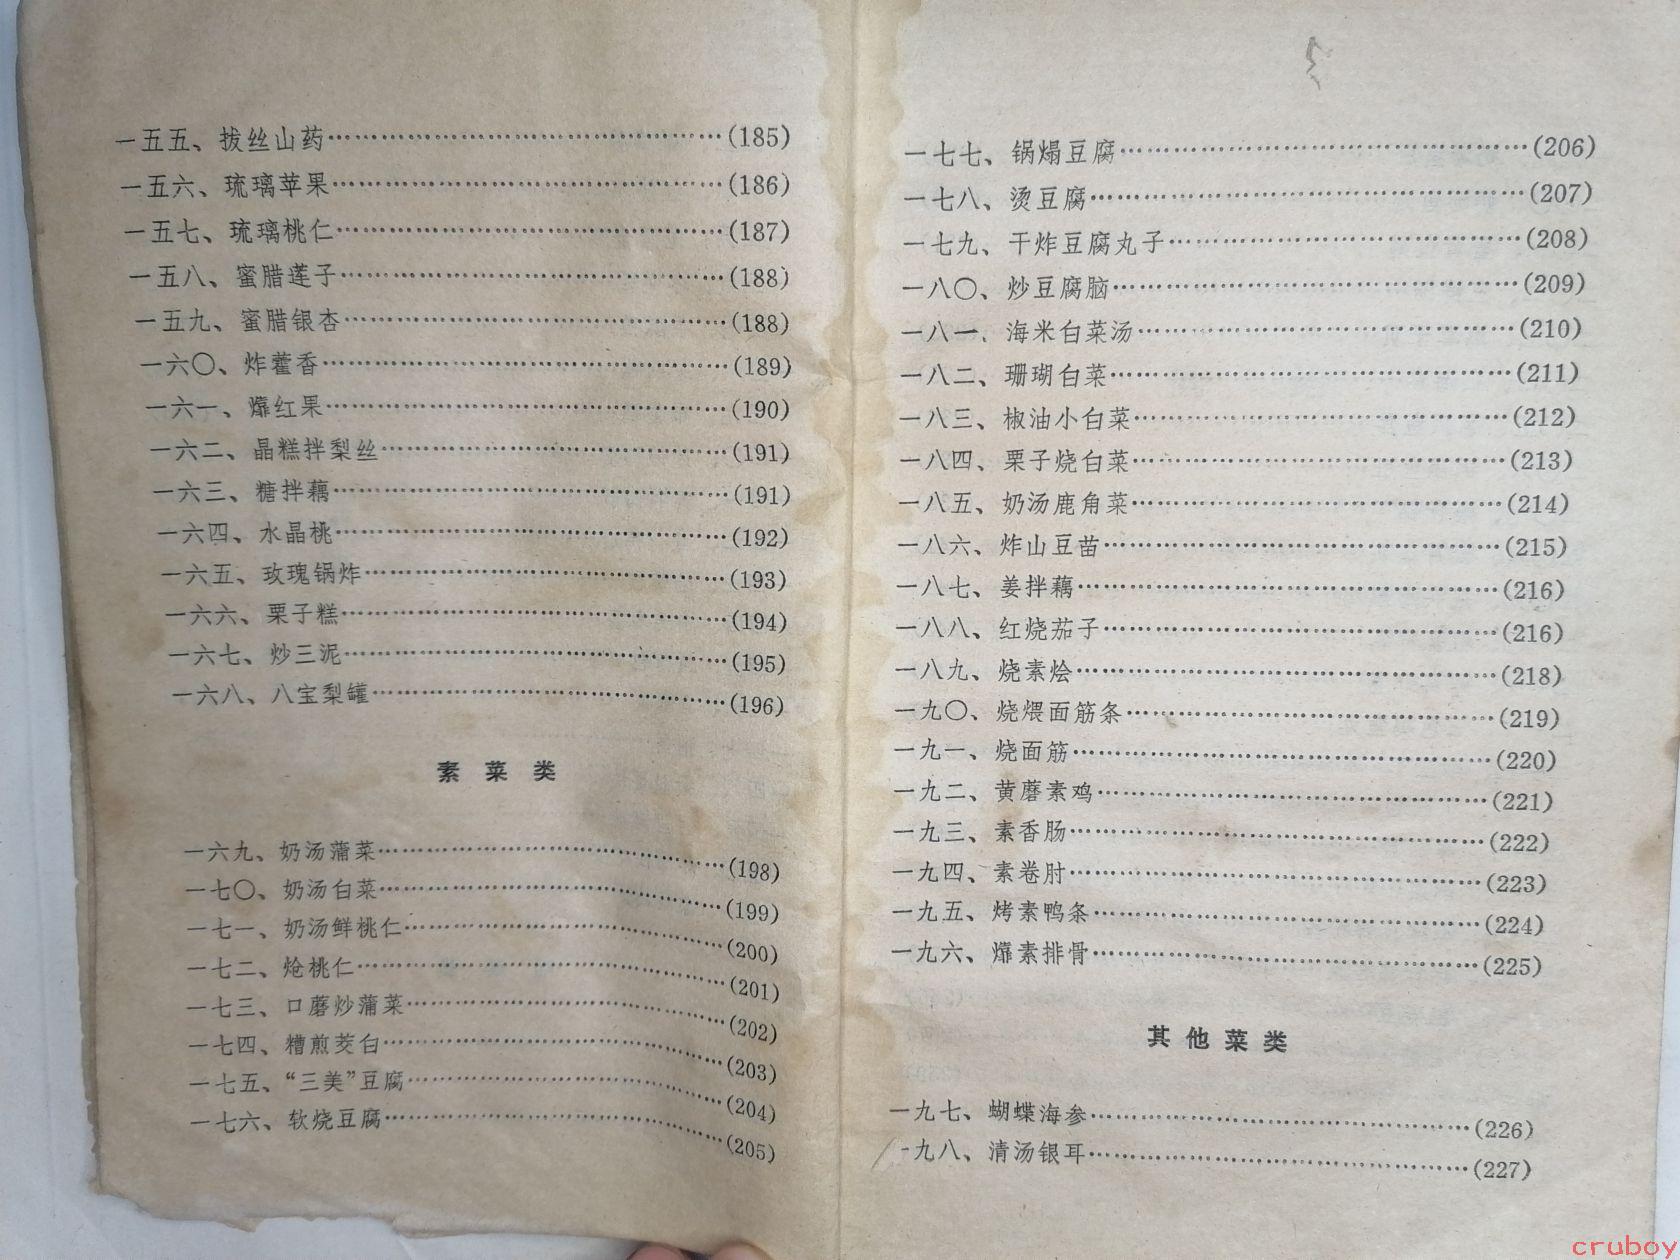 一五五、拔丝山药……(185)
一五六、琉璃苹果……(186)
一五七、琉璃桃仁……(187)
一五八、蜜腊莲子……(188)
一五九、蜜腊银杏……(188)
一六〇、炸藿香……(189)
一六一、㸆红果……(190)
一六二、晶糕拌梨丝……(191)
一六三、糖拌藕……(191)
一六四、水晶桃……(192)
一六五、玫瑰锅炸……(193)
一六六、栗子糕……(194)
一六七、炒三泥……(195)
一六八、八宝梨罐……(196)
素菜类
一六九、奶汤蒲菜……(198)
一七〇、奶汤白菜……(199)
一七一、奶汤鲜桃仁……(200)
一七二、炝桃仁……(201)
一七三、口蘑炒蒲菜……(202)
一七四、糟煎茭白……(203)
一七五、“三美”豆腐……(204)
一七六、软烧豆腐……(205)
一七七、锅塌豆腐……(206)
一七八、烫豆腐……(207)
一七九、干炸豆腐丸子……(208)
一八〇、炒豆腐脑……(209)
一八一、海米白菜汤……(210)
一八二、珊瑚白菜……(211)
一八三、椒油小白菜……(212)
一八四、栗子烧白菜……(213)
一八五、奶汤鹿角菜……(214)
一八六、炸山豆苗……(215)
一八七、姜拌藕……(216)
一八八、红烧茄子……(216)
一八九、烧素烩……(218)
一九〇、烧煨面筋条……(219)
一九一、烧面筋……(220)
一九二、黄蘑素鸡……(221)
一九三、素香肠……(222)
一九四、素卷肘……(223)
一九五、烤素鸭条……(224)
一九六、㸆素排骨……(225)
其他菜类
一九七、蝴蝶海参……(226)
一九八、清汤银耳……(227)
cruboy